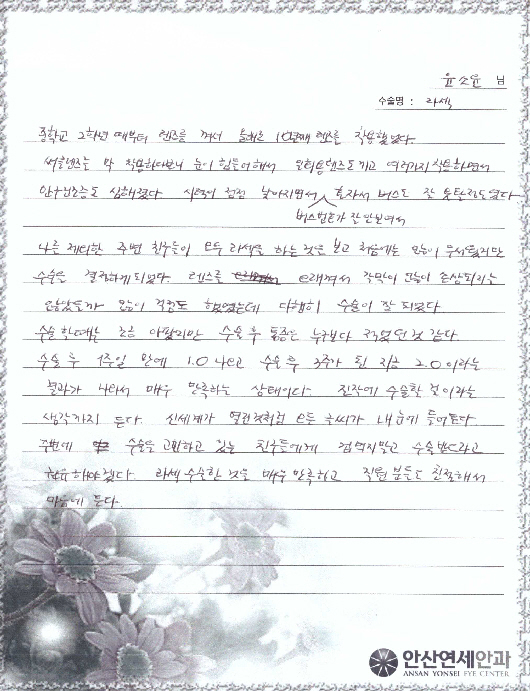 윤소윤 님
수술명 : 라섹
중학교 2학년 때부터 렌즈를 껴서 올해로 10년째 렌즈를 착용했었다.
써클렌즈는 막 착용하다보니 눈이 힘들어해서 일회용렌즈도 끼고 여러가지 착용하면서
안구건조증도 심해졌다. 시력이 점점 낮아지면서 혼자서 버스도 잘 못탈정도였다
버스번호가 잘 안보여서
나를 제외한 주변 친구들이 모두 라섹을 하는 것을 보고 처음에는 많이 무서웠지만
수술을 결정하게 되었다. 렌즈를 오래껴서 각막이 많이 손상되지는
않았을까 많이 걱정도 했었는데 다행히 수술이 잘 되었다
수술할때는 조금 아팠지만 수술 후 통증은 누구보다 적었던 것 같다
수술 후 1주일 만에 1.0 나오고 수술 후 3주가 된 지금 2.0 이라는
결과가 나와서 매우 만족하는 상태이다. 진작에 수술할 걸이라는
생각까지 든다. 신세계가 열린것처럼 모든 글씨가 내 눈에 들어온다.
주변에 수술을 고민하고 있는 친구들에게 겁먹지말고 수술받으라고
권유해야겠다. 라섹 수술한 것을 매우 만족하고 직원 분들도 친절해서
마음에 든다.
안산연세안과
ANSAN YONSEI EYE CENTER